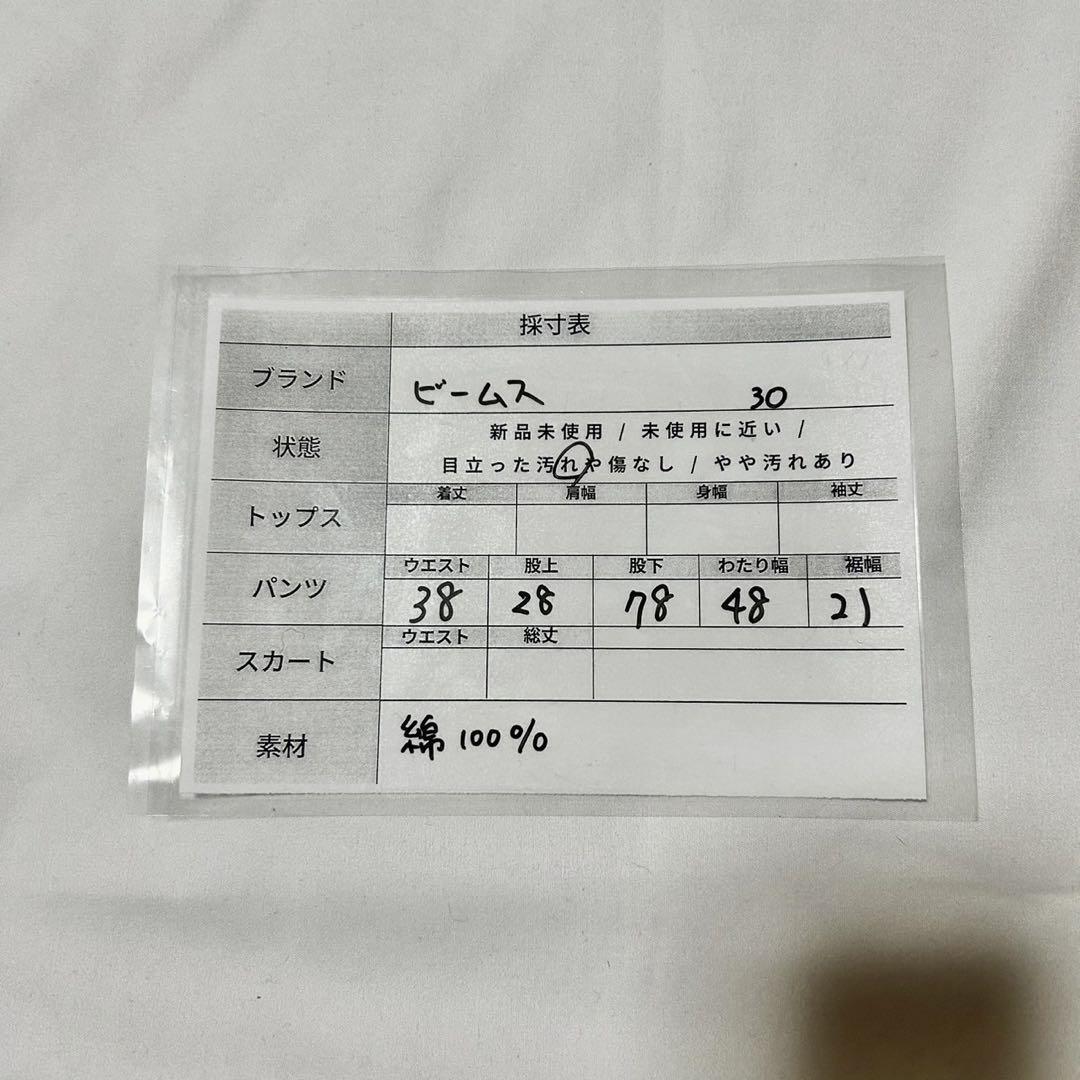 採寸表
ブランド ビームス 30
状態 新品未使用 / 未使用に近い /
目立った汚れや傷なし / やや汚れあり
トップス 着丈 肩幅 身幅 袖丈
パンツ ウエスト 股上 股下 わたり幅 裾幅
38 28 78 48 21
スカート ウエスト 総丈
素材 綿100%